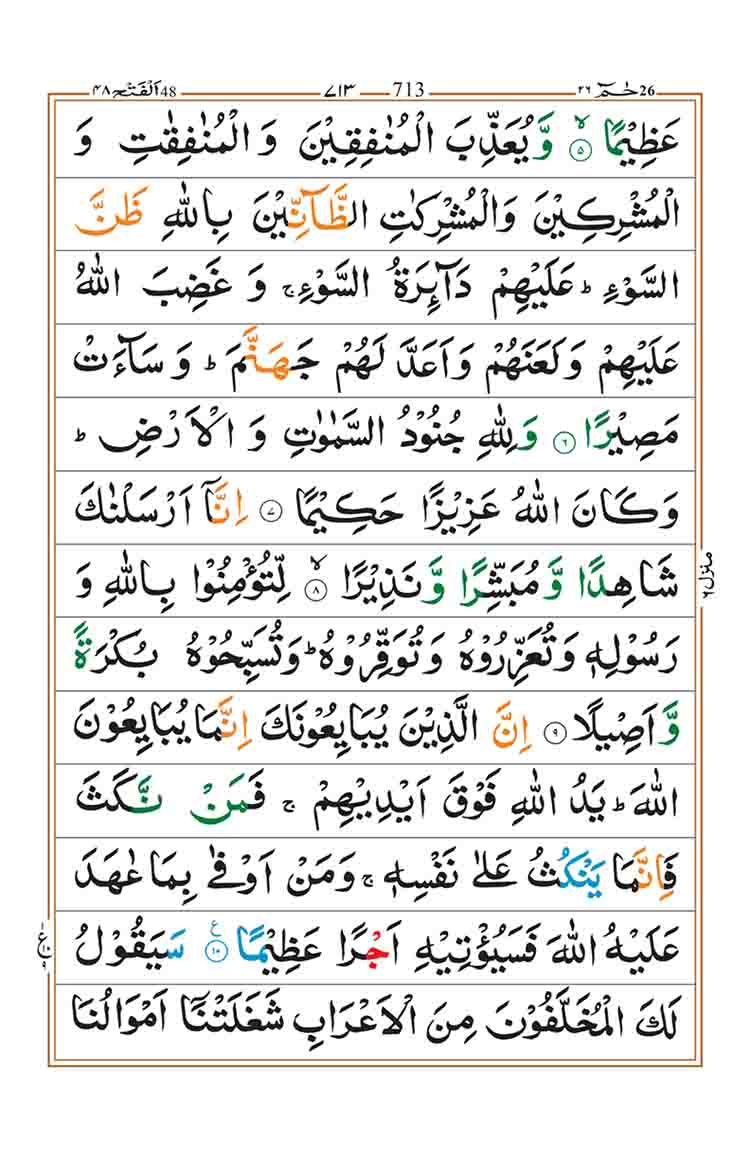 حٰمٓ 26 ٢٦ 713 ٧١٣ اَلْفَتْح 48 ٤٨
عَظِيْمًا ۙ‏﴿۵﴾ وَّ يُعَذِّبَ الْمُنٰفِقِيْنَ وَ الْمُنٰفِقٰتِ وَ
الْمُشْرِكِيْنَ وَالْمُشْرِكٰتِ الظَّآنِّيْنَ بِاللّٰهِ ظَنَّ
السَّوْءِ ؕ عَلَيْهِمْ دَآئِرَةُ السَّوْءِ ۚ وَ غَضِبَ اللّٰهُ
عَلَيْهِمْ وَلَعَنَهُمْ وَاَعَدَّ لَهُمْ جَهَنَّمَ ؕ وَ سَآءَتْ
مَصِيْرًا ﴿۶﴾ وَلِلّٰهِ جُنُوْدُ السَّمٰوٰتِ وَ الْاَرْضِ ؕ
وَكَانَ اللّٰهُ عَزِيْزًا حَكِيْمًا ﴿۷﴾ اِنَّاۤ اَرْسَلْنٰكَ
شَاهِدًا وَّ مُبَشِّرًا وَّ نَذِيْرًا ۙ‏﴿۸﴾ لِّتُؤْمِنُوْا بِاللّٰهِ وَ
رَسُوْلِهٖ وَتُعَزِّرُوْهُ وَتُوَقِّرُوْهُ ؕ وَتُسَبِّحُوْهُ بُكْرَةً
وَّ اَصِيْلًا ﴿۹﴾ اِنَّ الَّذِيْنَ يُبَايِعُوْنَكَ اِنَّمَا يُبَايِعُوْنَ
اللّٰهَ ؕ يَدُ اللّٰهِ فَوْقَ اَيْدِيْهِمْ ۚ فَمَنْ نَّكَثَ
فَاِنَّمَا يَنْكُثُ عَلٰى نَفْسِهٖ ۚ وَمَنْ اَوْفٰى بِمَا عٰهَدَ
عَلَيْهُ اللّٰهَ فَسَيُؤْتِيْهِ اَجْرًا عَظِيْمًا ﴿۱۰﴾ ع سَيَقُوْلُ
لَكَ الْمُخَلَّفُوْنَ مِنَ الْاَعْرَابِ شَغَلَتْنَاۤ اَمْوَالُنَا
منزل ٦